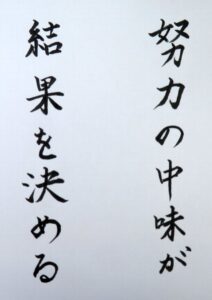 努力の中味が
結果を決める